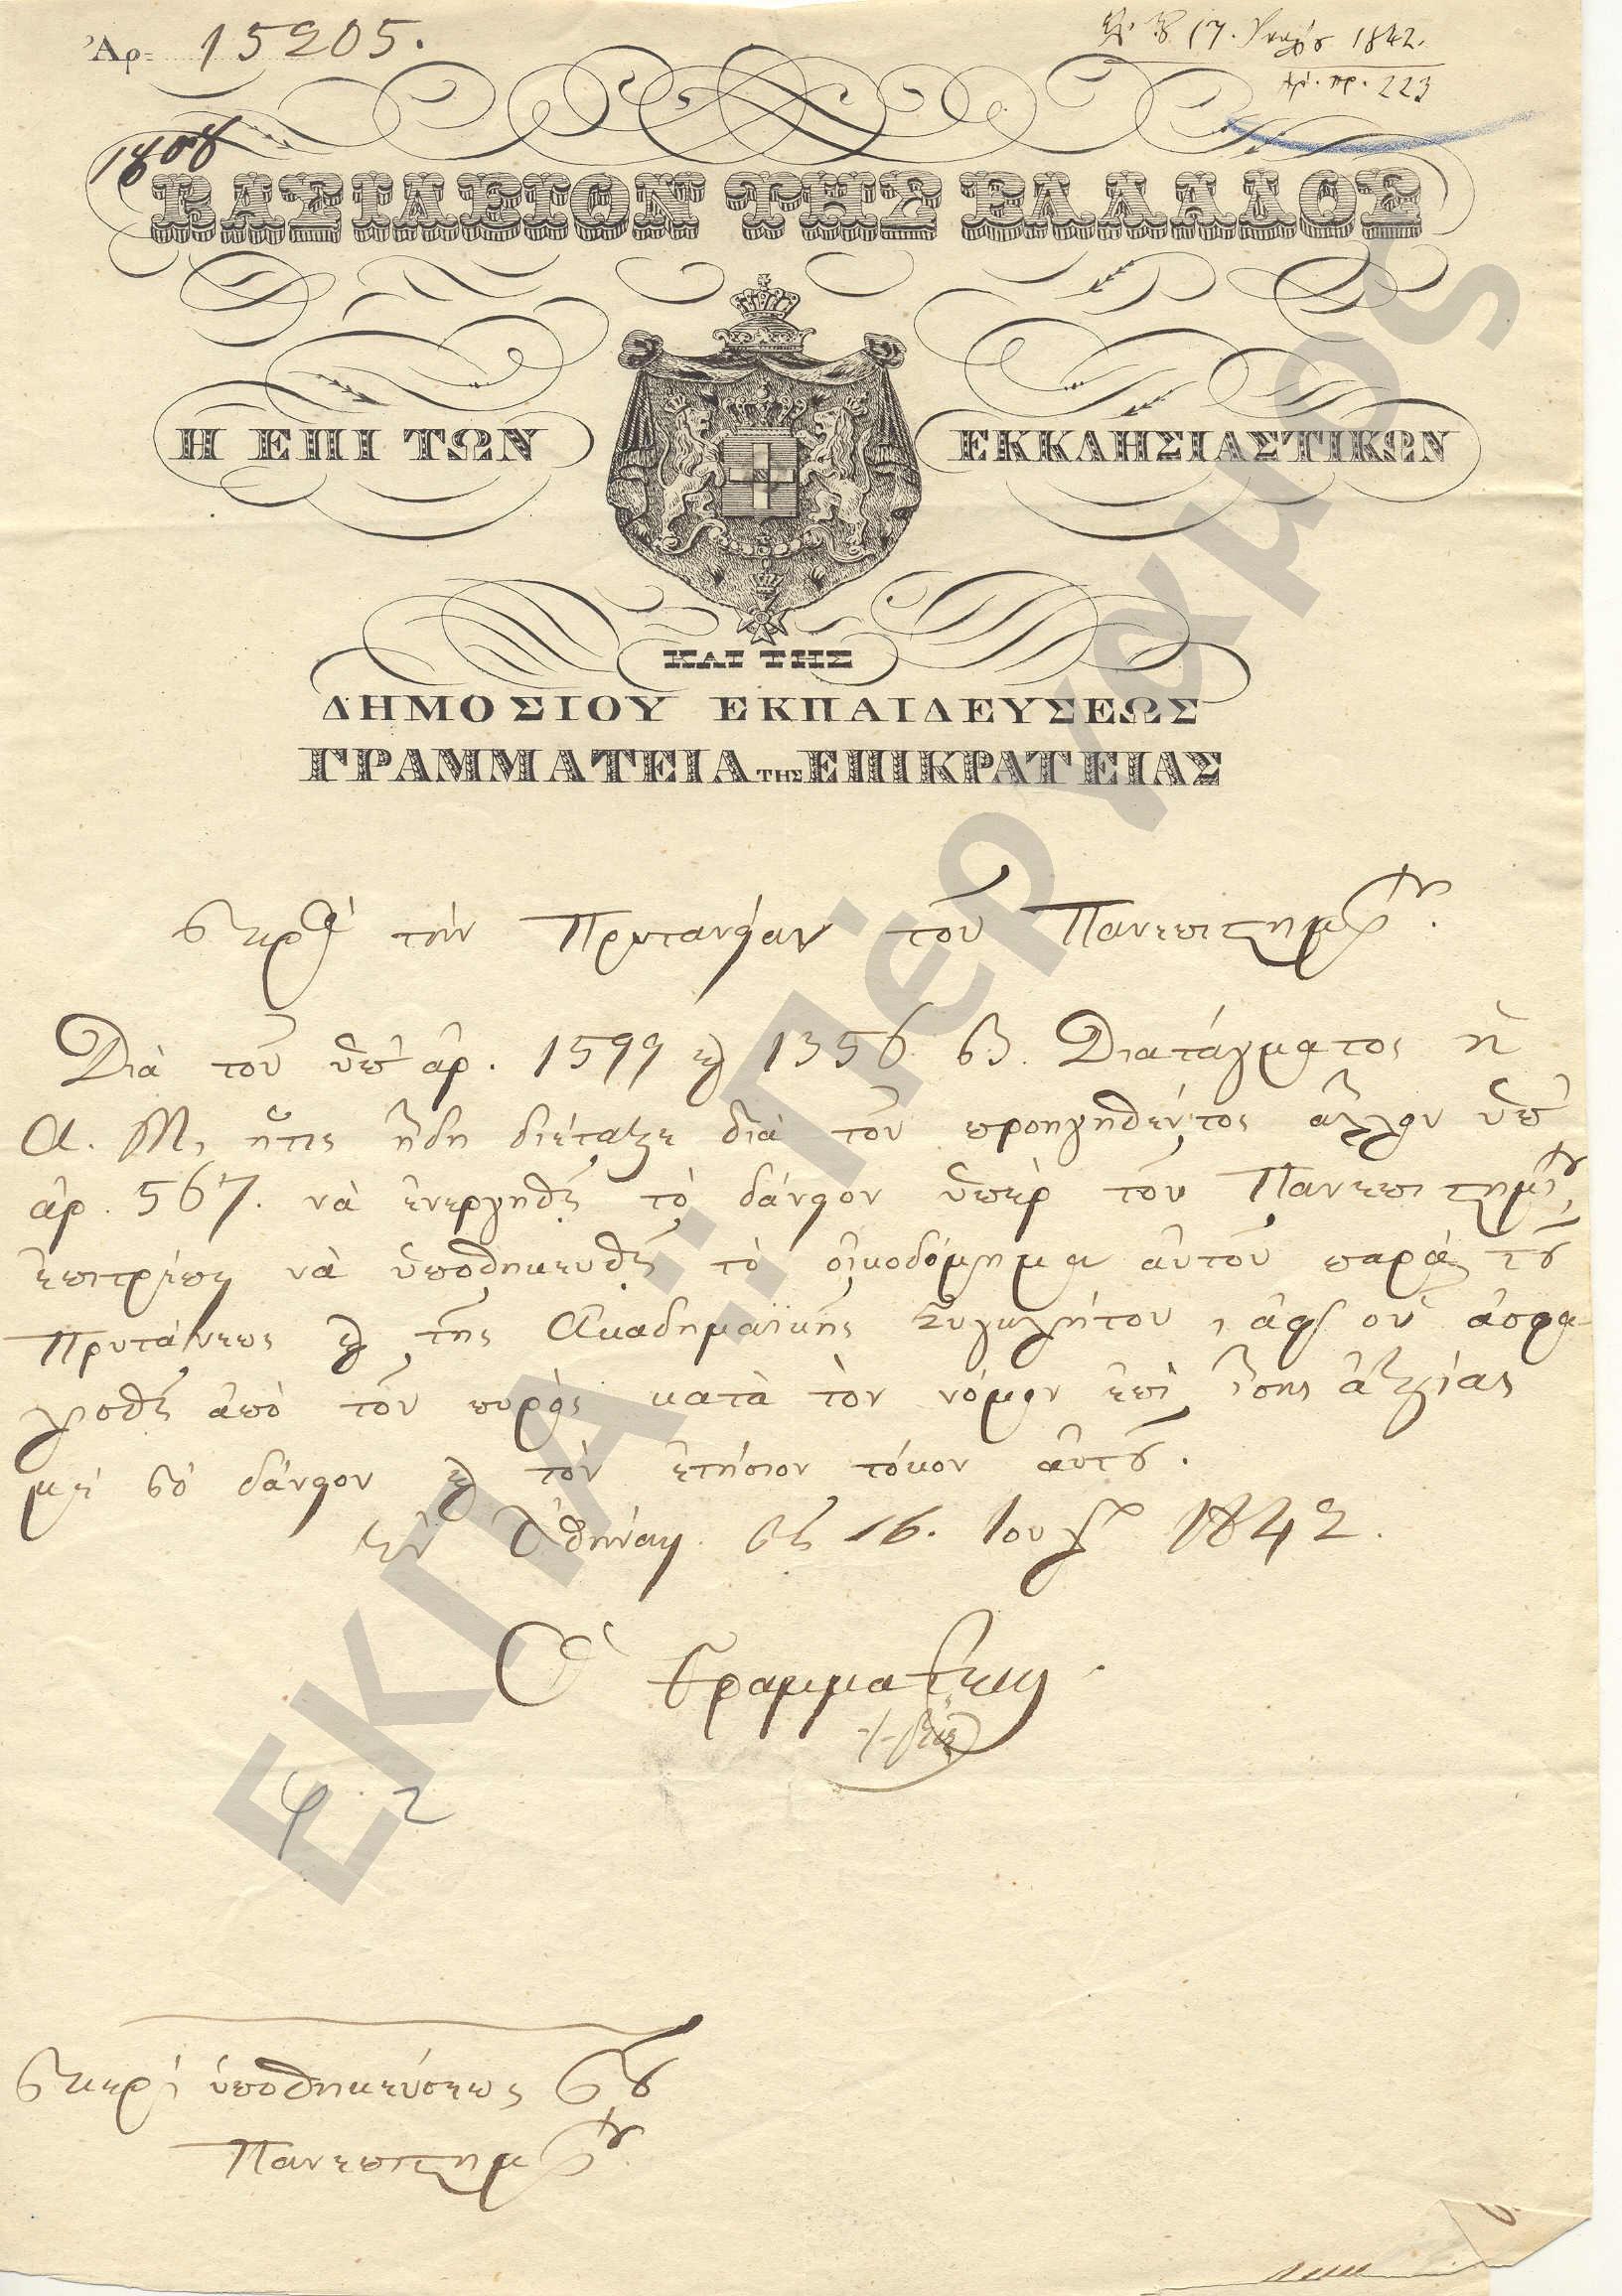 Ἀρ. 15205.
Ἐλ. τῇ 17. Ἰουλίου 1842.
ἀρ. πρ. 223
1808
ΒΑΣΙΛΕΙΟΝ ΤΗΣ ΕΛΛΑΔΟΣ
Η ΕΠΙ ΤΩΝ ΕΚΚΛΗΣΙΑΣΤΙΚΩΝ
ΚΑΙ ΤΗΣ
ΔΗΜΟΣΙΟΥ ΕΚΠΑΙΔΕΥΣΕΩΣ
ΓΡΑΜΜΑΤΕΙΑ ΤΗΣ ΕΠΙΚΡΑΤΕΙΑΣ
Πρὸς τὴν Πρυτανείαν τοῦ Πανεπιστημίου.
Διὰ τοῦ ὑπ' ἀρ. 1599 καὶ 1356 Β. Διατάγματος ἡ
Α. Μ, ἥτις ἤδη διέταξε διὰ τοῦ προηγηθέντος ἄλλου ὑπ'
ἀρ. 567. νὰ ἐνεργηθῇ τὸ δάνειον ὑπὲρ τοῦ Πανεπιστημίου,
ἐπιτρέπει νὰ ὑποθηκευθῇ τὸ οἰκοδόμημα αὐτοῦ παρὰ τοῦ
Πρυτάνεως καὶ τῆς Ἀκαδημαϊκῆς Συγκλήτου, ἀφ' οὗ ἀσφα-
λισθῇ ἀπὸ τοῦ πυρὸς κατὰ τὸν νόμον ἐπὶ ἴσης ἀξίας
μὲ τὸ δάνειον καὶ τὸν ἐτήσιον τόκον αὐτοῦ.
Ἐν Ἀθήναις τῇ 16. Ἰουλ. 1842.
Ὁ Γραμματεὺς.
φ 2
Περὶ ὑποθηκεύσεως τοῦ
Πανεπιστημίου.
ΕΚΠΑ.: Πέργαμος